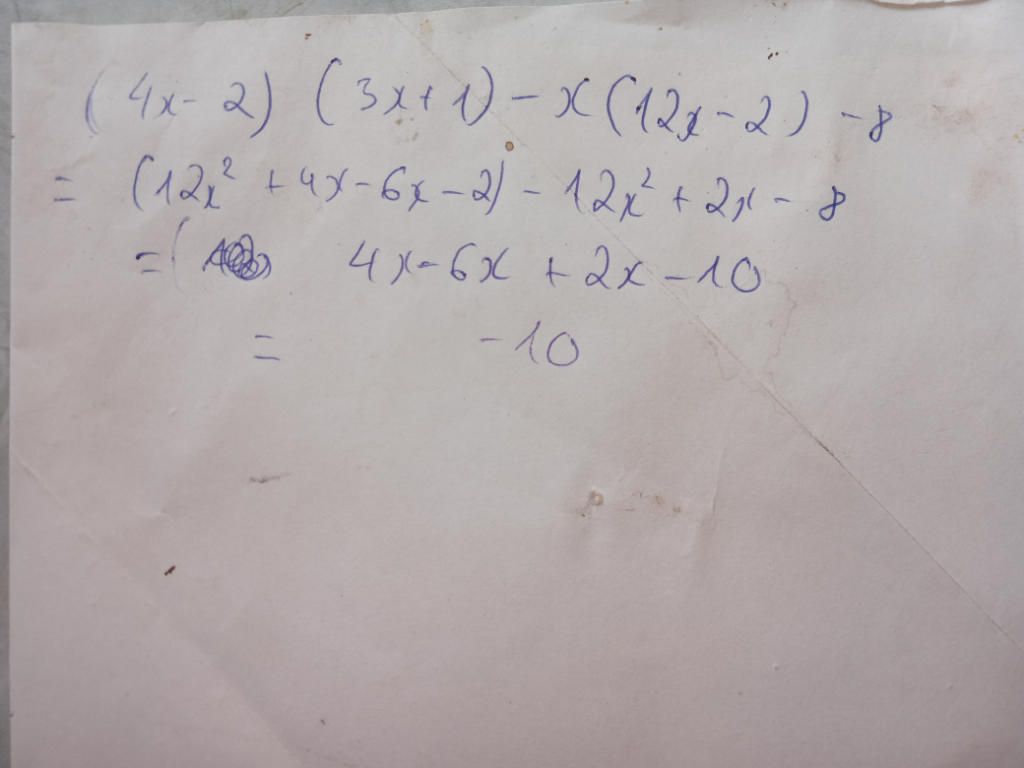 (4x-2) (3x+1) - x(12x-2) -8
= (12x² +4x-6x-2) - 12x² + 2x - 8
=( 4x-6x + 2x -10
= -10